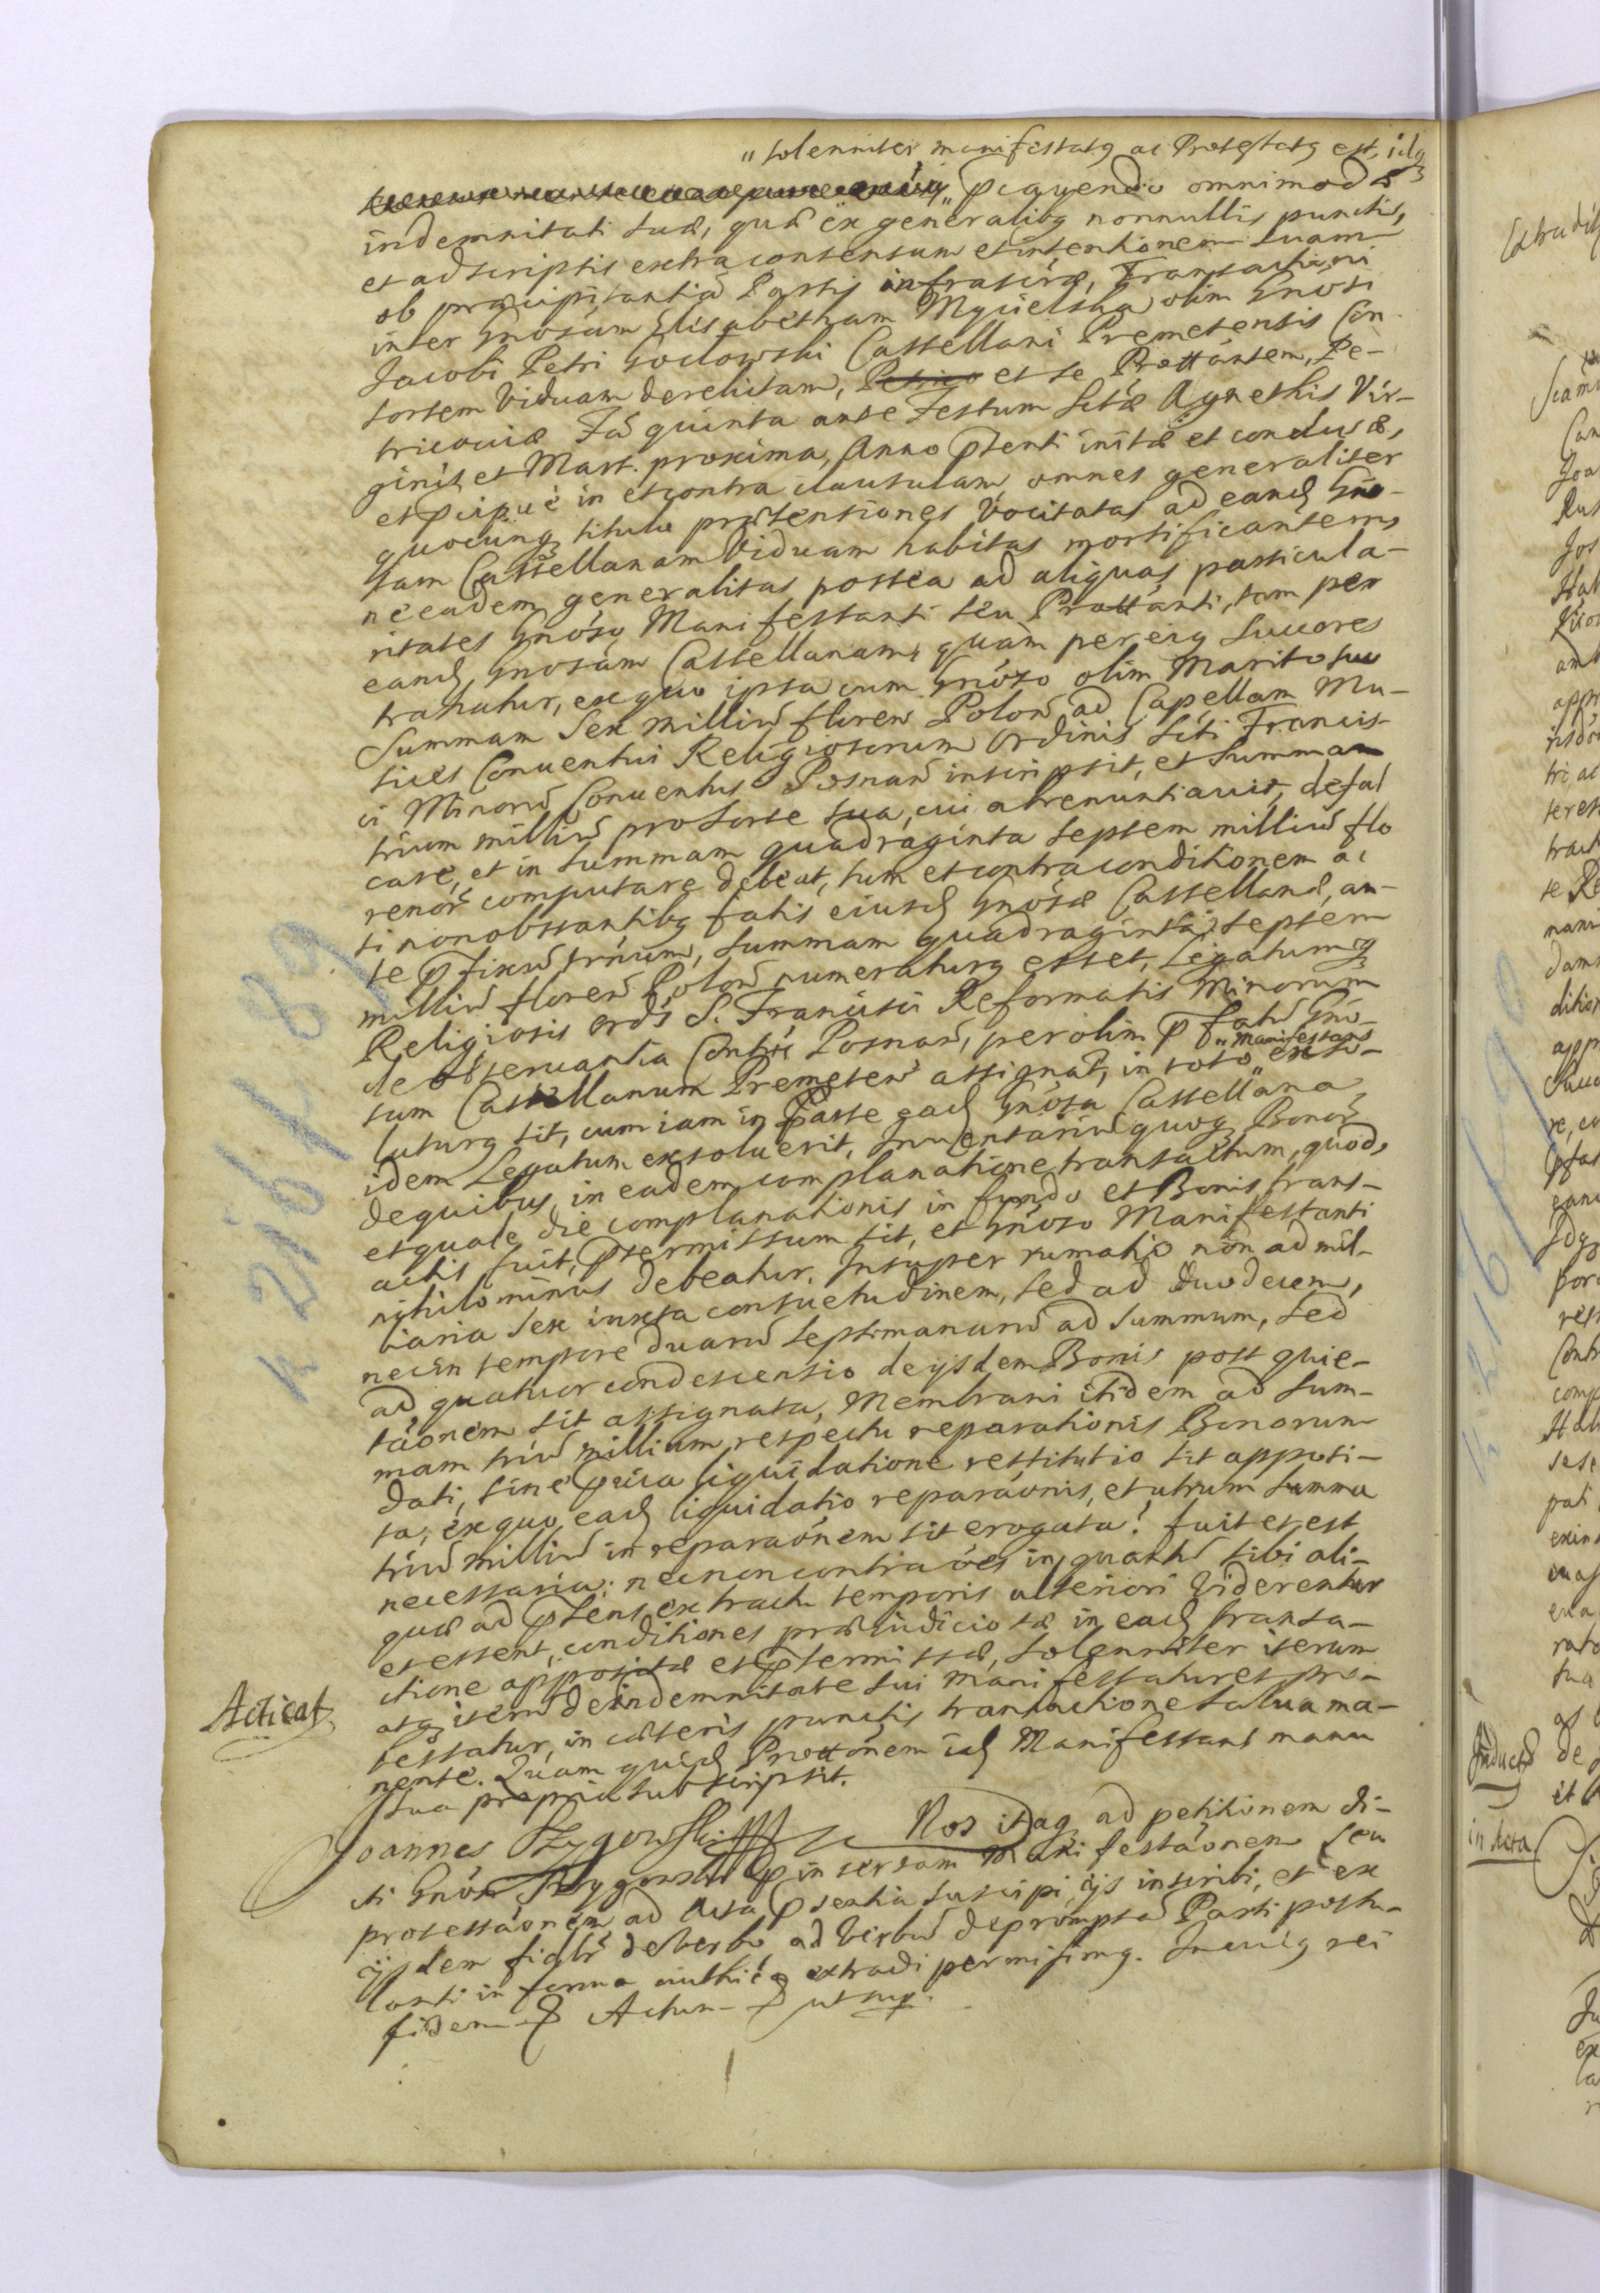 "solenniter manifestatq ac Protestatq est, idq
" pcavendo omnimodæ
indemnitati suæ, quæ ex generalibq nonnullis punctis,
et adscriptis extra consensum et intentionem suam
ob præcipitantiã Partis infrascræ, Transactioni
inter Gnosam Elisabetham Mycielska olim Gnosi
Jacobi Petri Castellani Premetensis Con-
sortem Viduam derelictam, et se Prottantem, Pe-
tricoviæ Fã quinta ante Festum Sctæ Agnethis Vir-
ginis et Mart. proxima, Anno pŝenti initæ et conclusæ,
et pcipuè in et contra clausulam omnes generaliter
quocunq titulo prætensiones vocitatas ad eand Gno-
sam Castellanam Viduam habitas mortificantem,
ne eadem generalitas postea ad aliquas particula-
ritates Gnosq Manifestanti seu Prottanti, tam per
eand Gnosam Castellanam, quam per eiq Succores
trahatur, ex quo ipsa cum Gnoso olim Marito suo
Summam Sex milliũ floren Polon ad Capellam Mu-
sices Conventui Religiosorum Ordinis Scti Francis-
ci Minorũ Conventus Posnan inscripsit, et Summam
trium milliũ pro sorte sua, cui abrenuntiavit, defal
care, et in summam quadraginta septem milliũ flo
renor computare debeat, tum et contra conditionem ac
si non obstantibq fatis eiusd Gnosæ Castellanæ, an-
te pfixũ trnum, summam quadraginta septem
milliũ floren Polon numeraturq esset, Legatumq
Religiosis Ords S. Francisci Reformatis Minorum
de Observantia Contus Posnan, per olim pfatũ Gno-
"Manifestans
sum Castellanum Premeten assignat, in toto " exso-
luturq sit, cum iam in Parte ead Gnosa Castellana,
idem Legatum exsoluerit, Inventariũ quoq Bonor
de quibus in eadem complanatione transactum, quod,
et quale die complanationis in fundo et Bonis trans-
actis fuit, ptermissum sit, et Gnoso Manifestanti
nihilominus debeatur. Insuper rumatio non ad mil-
liaria sex iuxta consuetudinem, sed ad duodecem,
nec in tempore duarũ septimanarũ ad summum, sed
ad quatuor condescensio de ijsdem Bonis post quie-
tãonem sit assignata, Membrani itidem ad sum-
mam triũ millium respectu reparationis Bonorum
dati, sine pvia liquidatione restitutio sit apposi-
ta; ex quo ead liquidatio reparaonis, et utrum summa
triũ milliũ in reparaonem sit erogata? fuit et est
necessaria: nec non contra oes in quantũ sibi ali-
quæ ad pŝens ex tractu temporis ulteriori viderentur
et essent, conditiones præiudiciosæ in ead transa-
ctione appositæ et ptermissæ, solenniter iterum
atq iterũ de indemnitate sui manifestatur et pro-
testatur, in cæteris punctis transactione salua ma-
nente. Quam quid Prottonem id Manifestans manu
sua propria subscripsit.
Acticat
Joannes Szygowski Nos itaq ad petitionem di-
cti Gnosi Szygowski pinsertam Manifestãonem seu
protestãonem ad Acta pŝentia suscipi, ijs inscribi, et ex
ijsdem fidlr de verbo ad verbũ depromptã Parti postu-
lanti in forma authica extradi permisimq. In cuiq rei
fidem & Actum & ut sup.